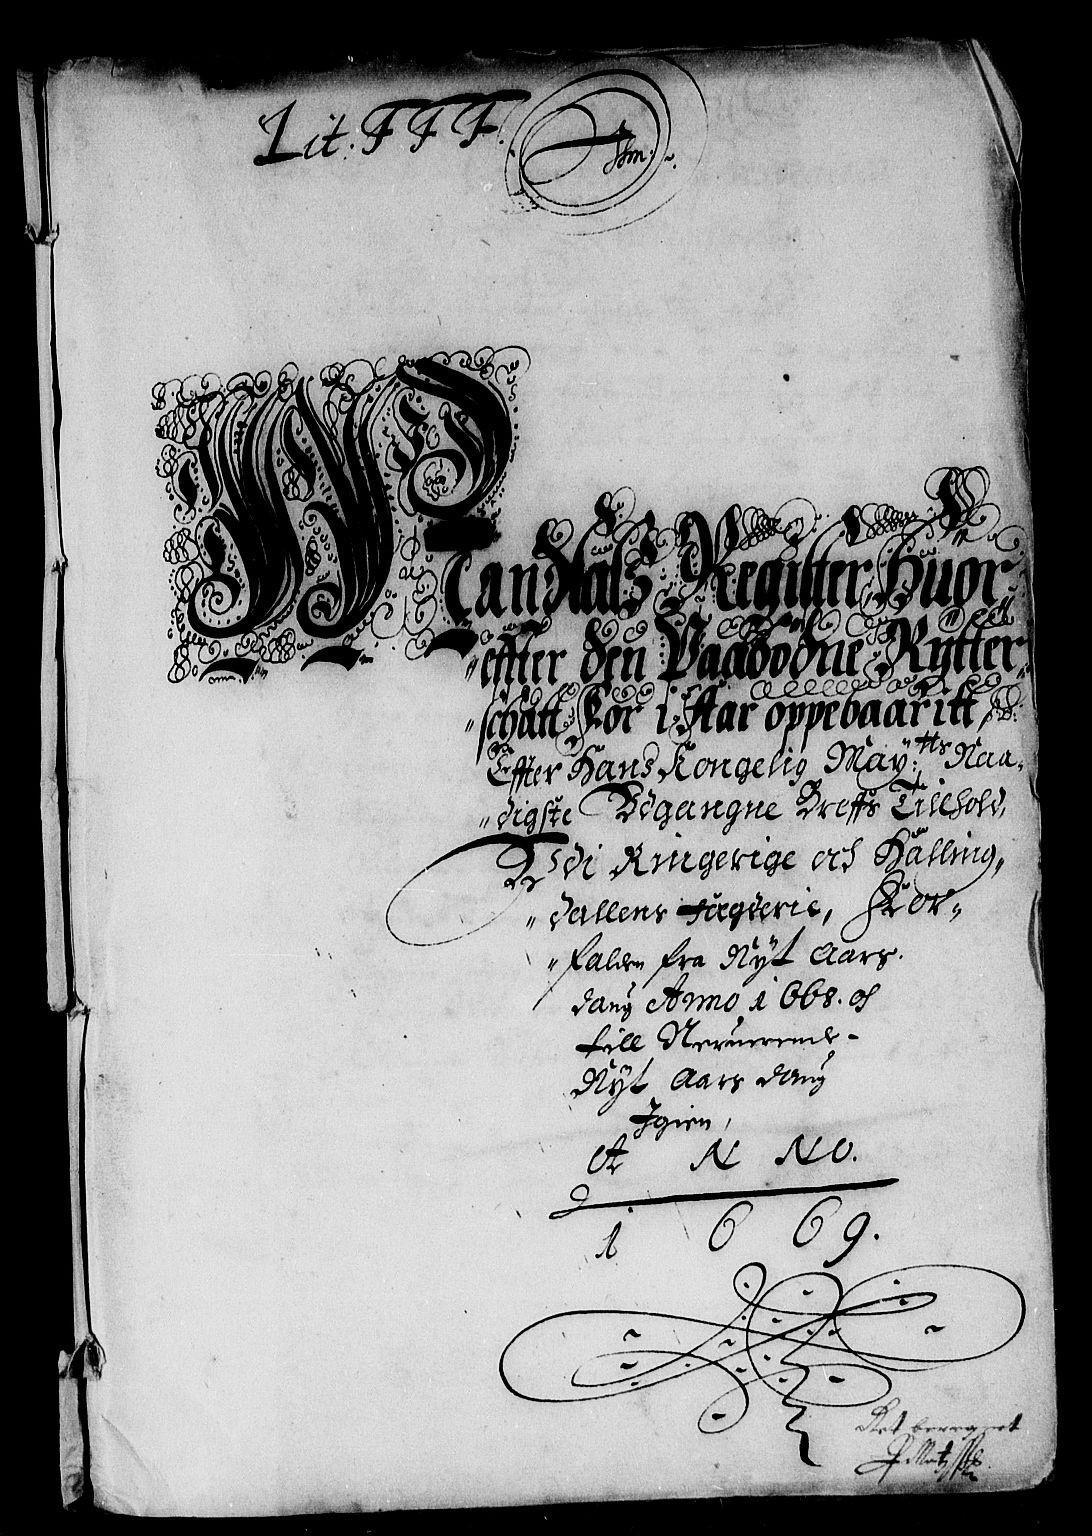 Lit. FFF.
Mandtals Register Huor
effter den Paabødne Rytter
schatt For i Aar oppebaaritt
Effter Hans Kongelig May:tts Naa-
digste Udgangne Breffs Tilhold,
Udi Ringerige och Halling,
dallens fugderie, For-
falden fra Nyt Aars
daug Anno 1668. och
till Nerurende
Nyt Aars daug
Igien,
A N N O.
1 6 6 9.
Ret beregnet